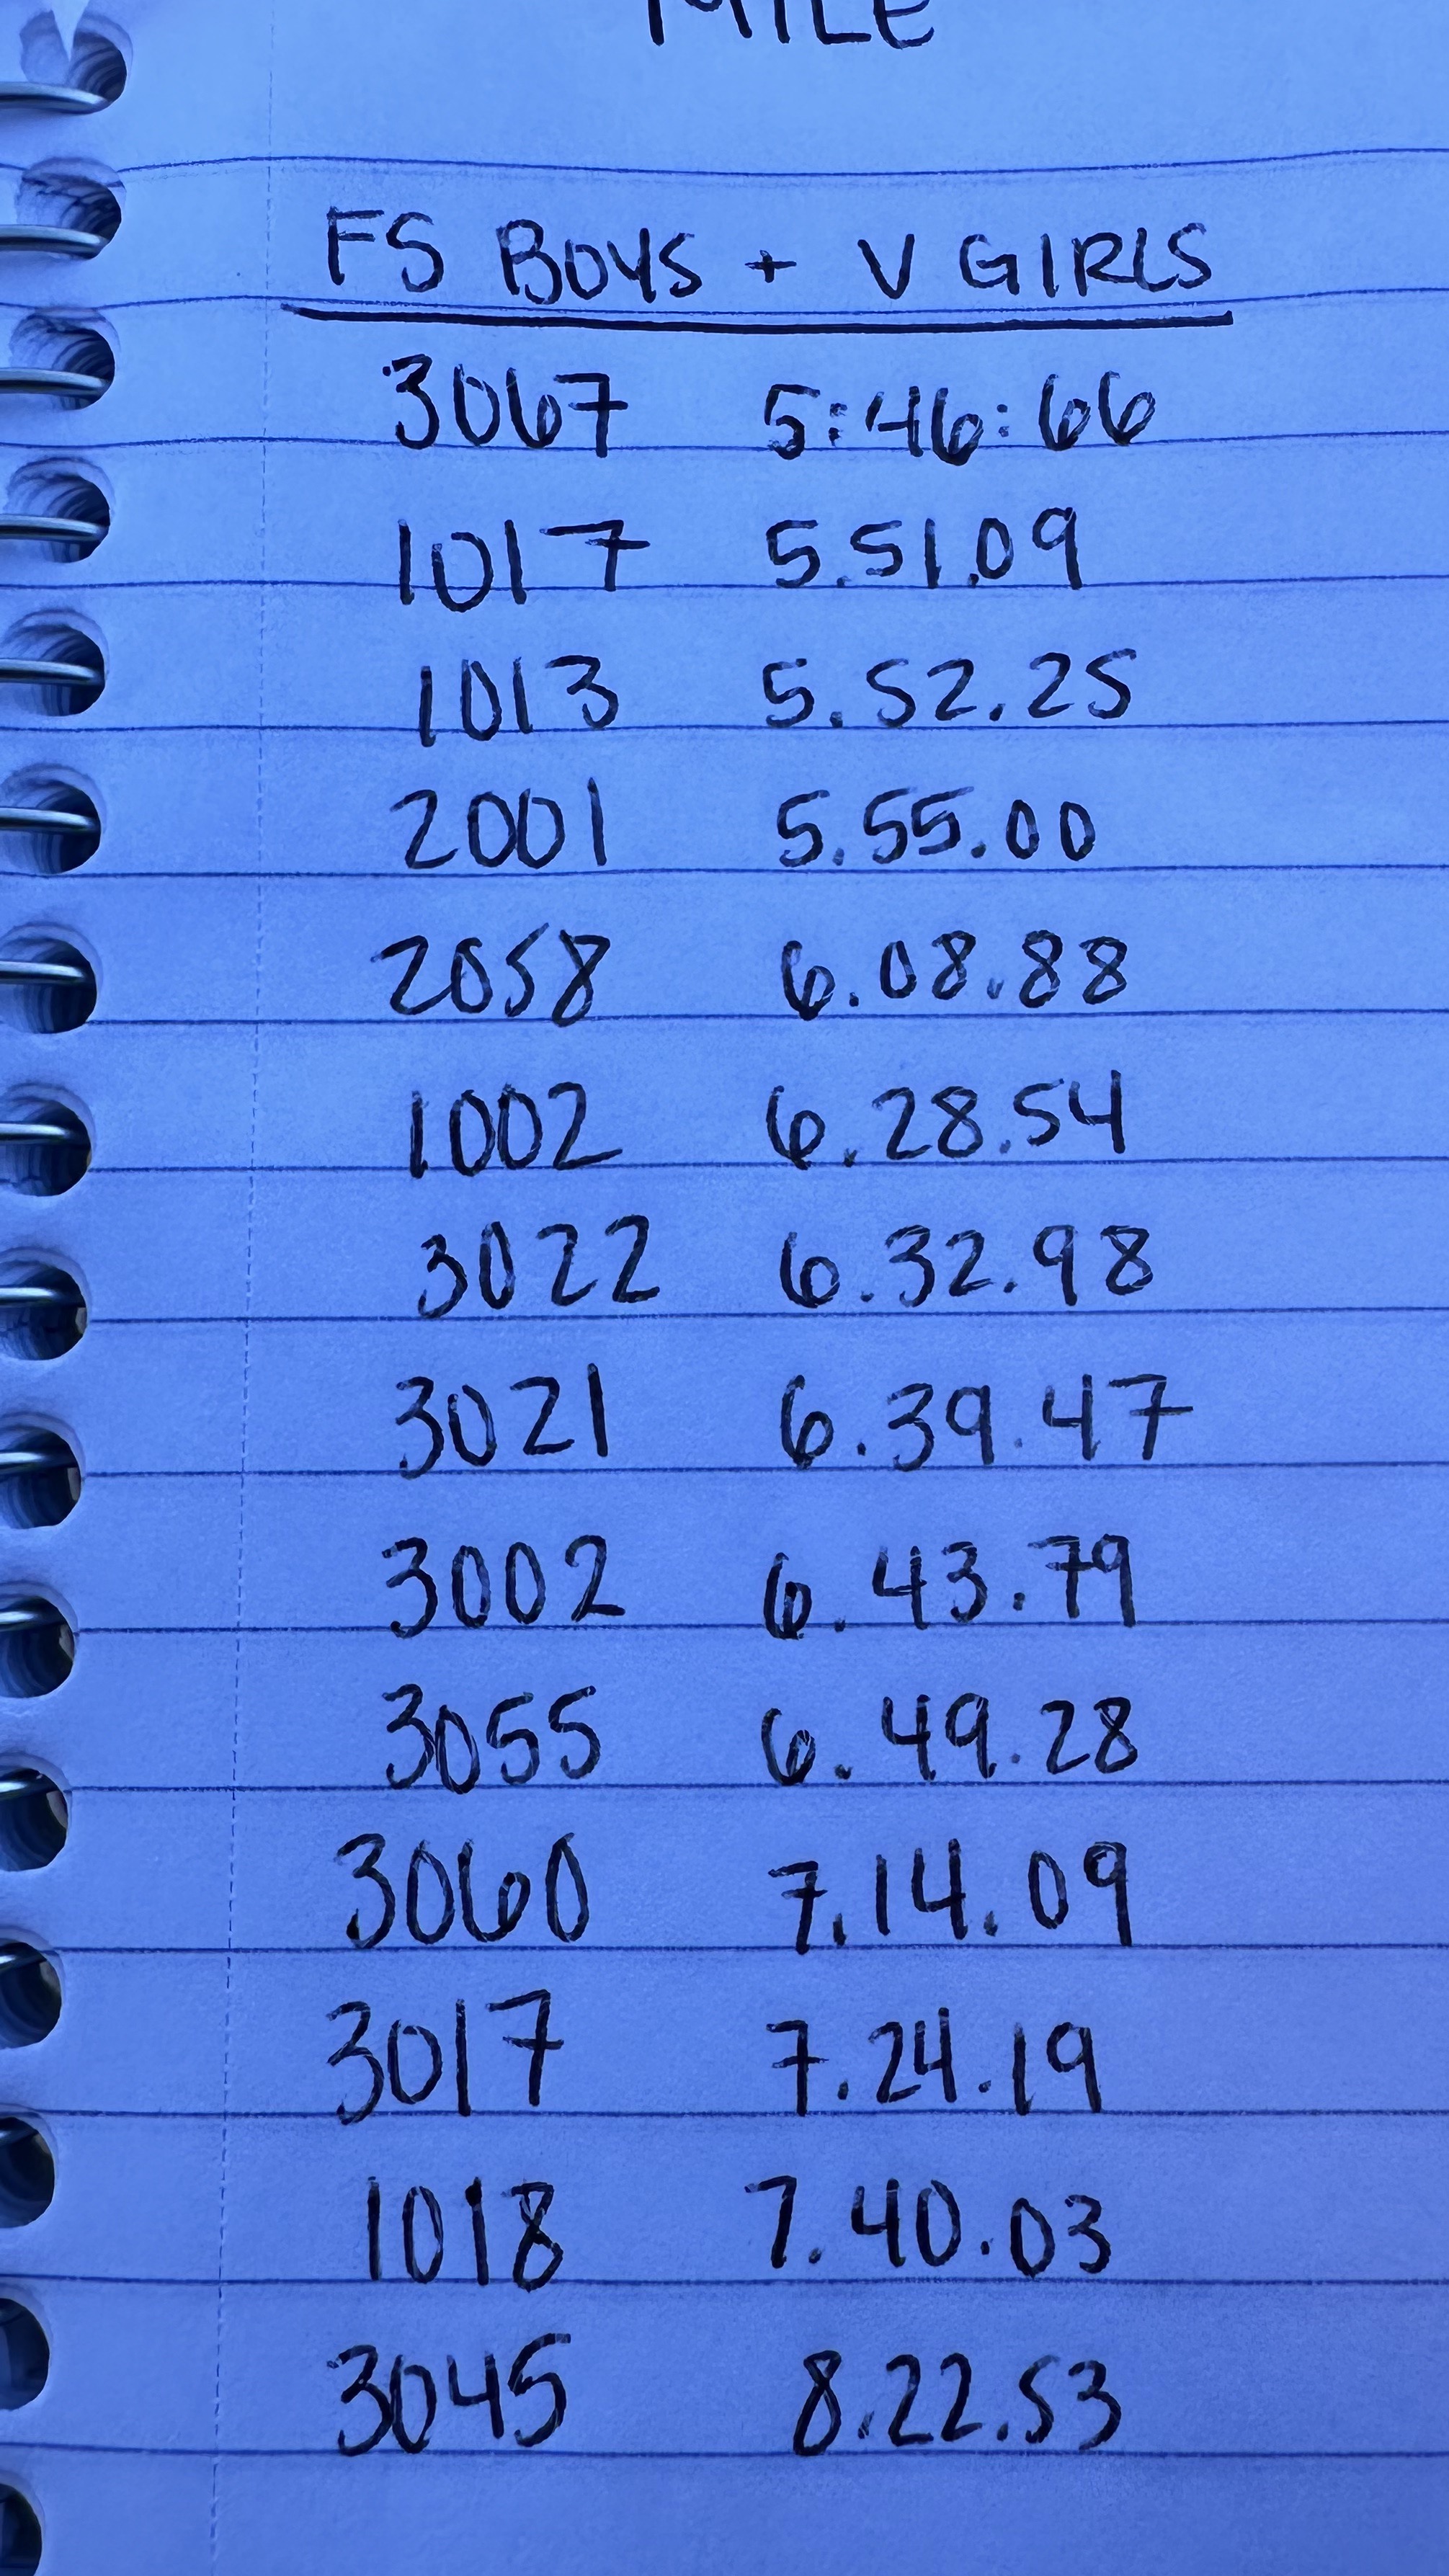 MILE
FS BOYS + V GIRLS
3067 5:46:66
1017 5.51.09
1013 5.52.25
2001 5.55.00
2058 6.08.88
1002 6.28.54
3022 6.32.98
3021 6.39.47
3002 6.43.79
3055 6.49.28
3060 7.14.09
3017 7.24.19
1018 7.40.03
3045 8.22.53